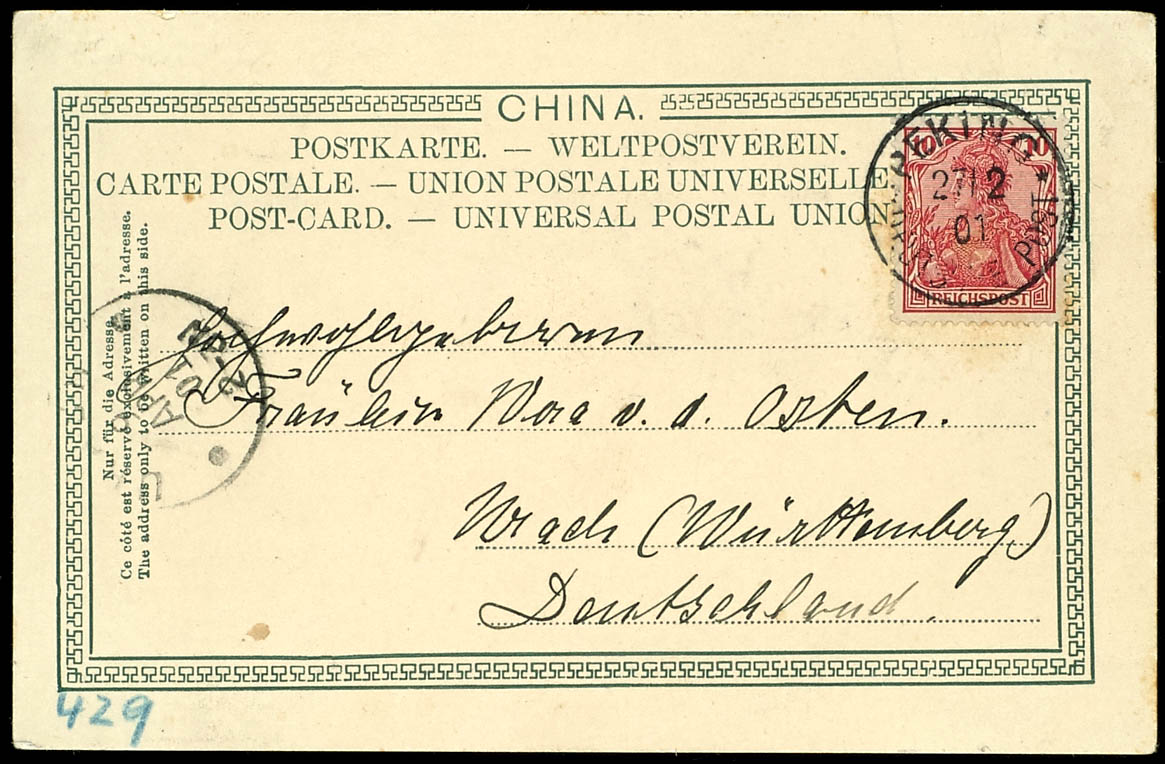 CHINA.
POSTKARTE. — WELTPOSTVEREIN.
CARTE POSTALE. — UNION POSTALE UNIVERSELLE
POST-CARD. — UNIVERSAL POSTAL UNION
10 10
REICHSPOST
PEKING
27/12
01
Nur für die Adresse.
Ce côté est réservé exclusivement à l'adresse.
The address only to be written on this side.
Hochwohlgeboren
Fräulein v. d. Osten.
Urach (Württemberg)
Deutschland.
429